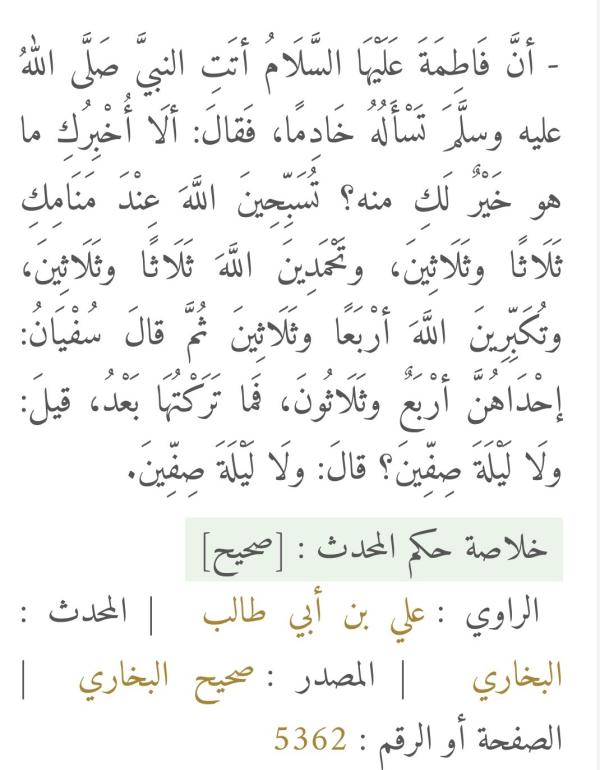 - أنَّ فَاطِمَةَ عَلَيْهَا السَّلَامُ أتَتِ النبيَّ صَلَّى اللهُ
عليه وسلَّمَ تَسْأَلُهُ خَادِمًا، فَقالَ: ألَا أُخْبِرُكِ ما
هو خَيْرٌ لَكِ منه؟ تُسَبِّحِينَ اللَّهَ عِنْدَ مَنَامِكِ
ثَلَاثًا وثَلَاثِينَ، وتَحْمَدِينَ اللَّهَ ثَلَاثًا وثَلَاثِينَ،
وتُكَبِّرِينَ اللَّهَ أرْبَعًا وثَلَاثِينَ ثُمَّ قالَ سُفْيَانُ:
إحْدَاهُنَّ أرْبَعٌ وثَلَاثُونَ، فَما تَرَكْتُهَا بَعْدُ، قيلَ:
ولَا لَيْلَةَ صِفِّينَ؟ قالَ: ولَا لَيْلَةَ صِفِّينَ.
خلاصة حكم المحدث : [صحيح]
الراوي : علي بن أبي طالب | المحدث :
البخاري | المصدر : صحيح البخاري |
الصفحة أو الرقم : 5362